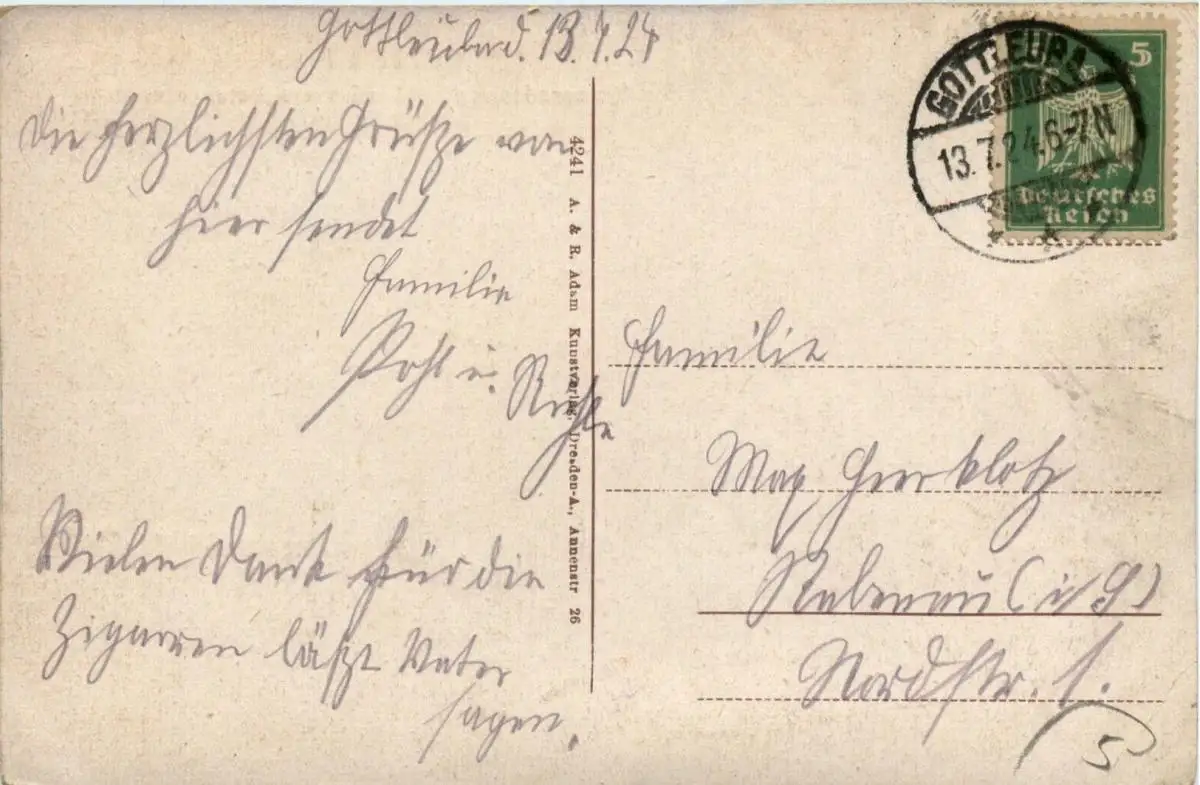 Gottleuba d. 13.7.24
Die herzlichsten Grüße von
hier sendet
Familie
Pohl u.
Die Vielen Dank für die
Zigarren läßt Vater
sagen.
4241 A. & R. Adam Kunstverlag, Dresden-A., Annenstr 26
GOTTLEUBA
13.7.24.6-7N
5
Deutsches
Reich
Familie
Max Heerklotz
Rabenau (i S)
Nordstr. 1.
5